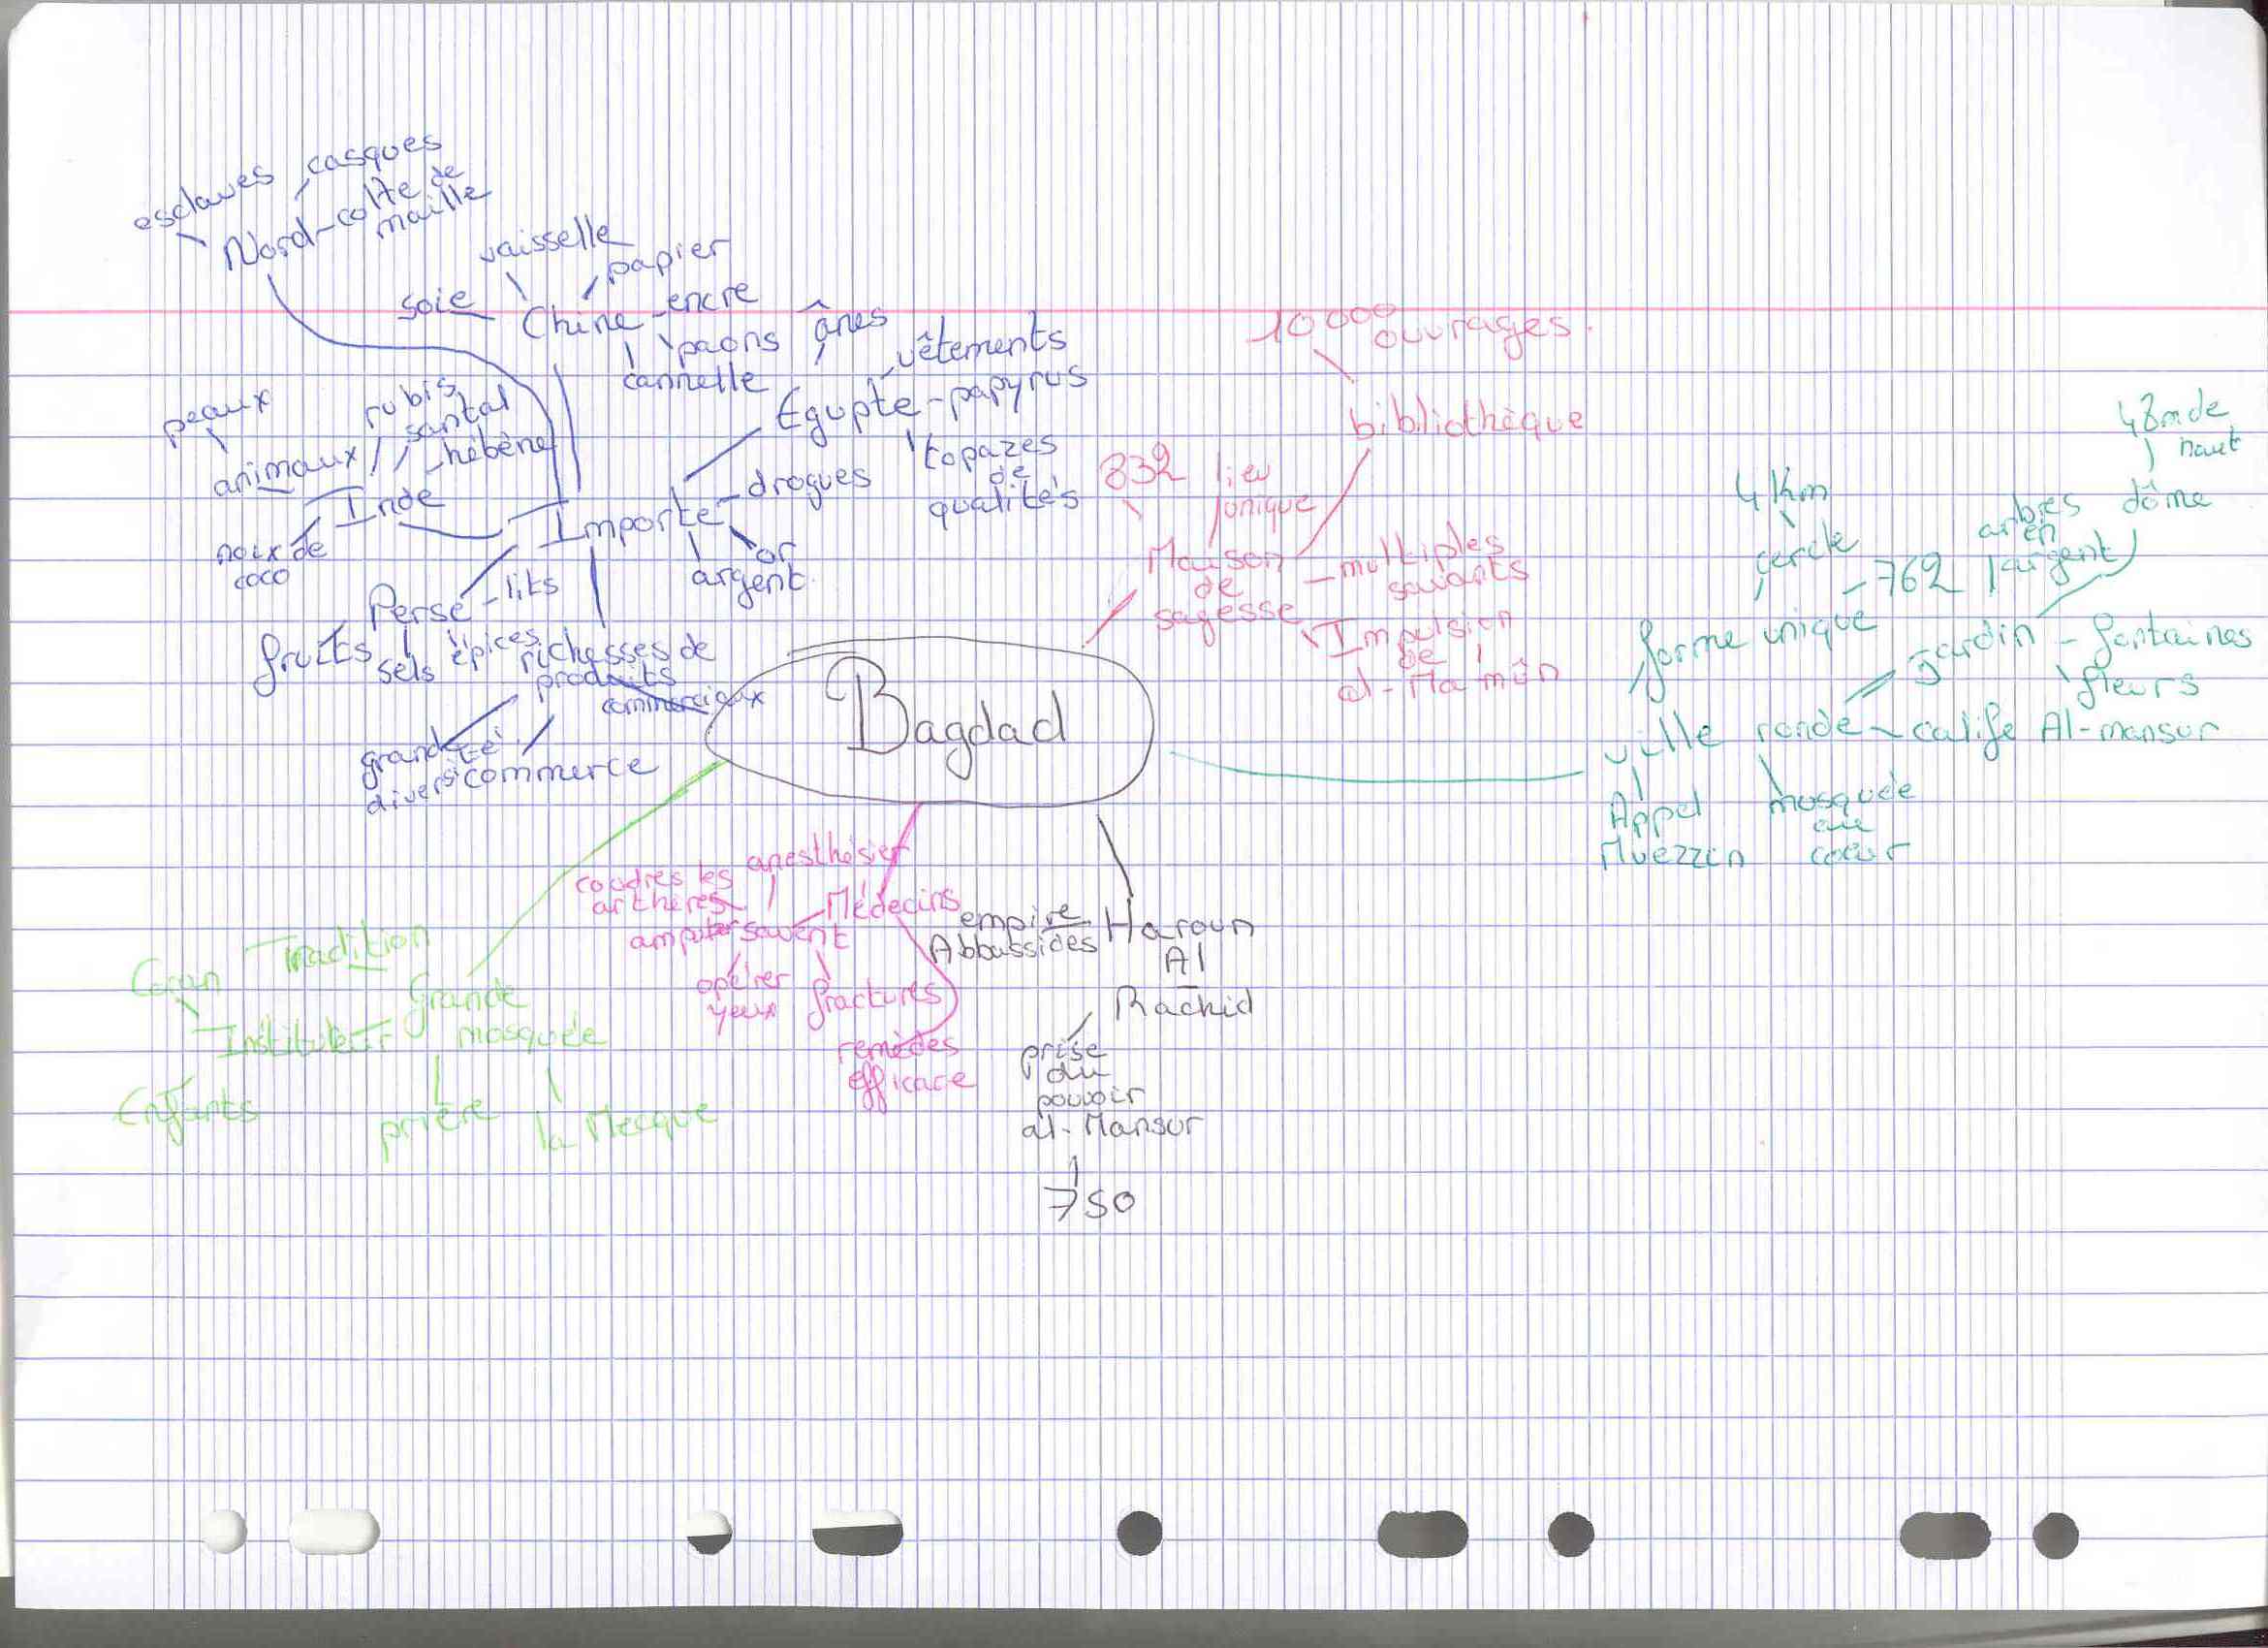 esclaves
casques
Nord-cotte de
maille
vaisselle
papier
soie
Chine-encre
paons
cannelle
ânes
vêtements
Egypte-papyrus
topazes
de
qualités
peaux
animaux
rubis
santal
hébène
Inde
noix de
coco
Importe
drogues
or
argent
Perse-lits
fruits
sels
épices
richesses de
produits
commerciaux
grande
diversité
commerce
10 000
ouvrages.
bibliothèque
832
lieu
unique
Maison
de
sagesse
multiples
savants
Impulsion
de
al-Ma mûn
Bagdad
48m de
haut
4 Km
cercle
762
arbres
en
argent
dôme
forme unique
jardin - fontaines
fleurs
ville ronde - calife Al-mansur
Appel
Muezzin
mosquée
au
coeur
coudres les
arthères
anesthésier
Médecins
amputer
savent
opérer
yeux
fractures
remèdes
efficace
empire
Abbassides
Haroun
Al
Rachid
prise
du
pouvoir
al-Mansur
750
Coran
Tradition
Grande
mosquée
Instituteur
Enfants
prière
la Mecque